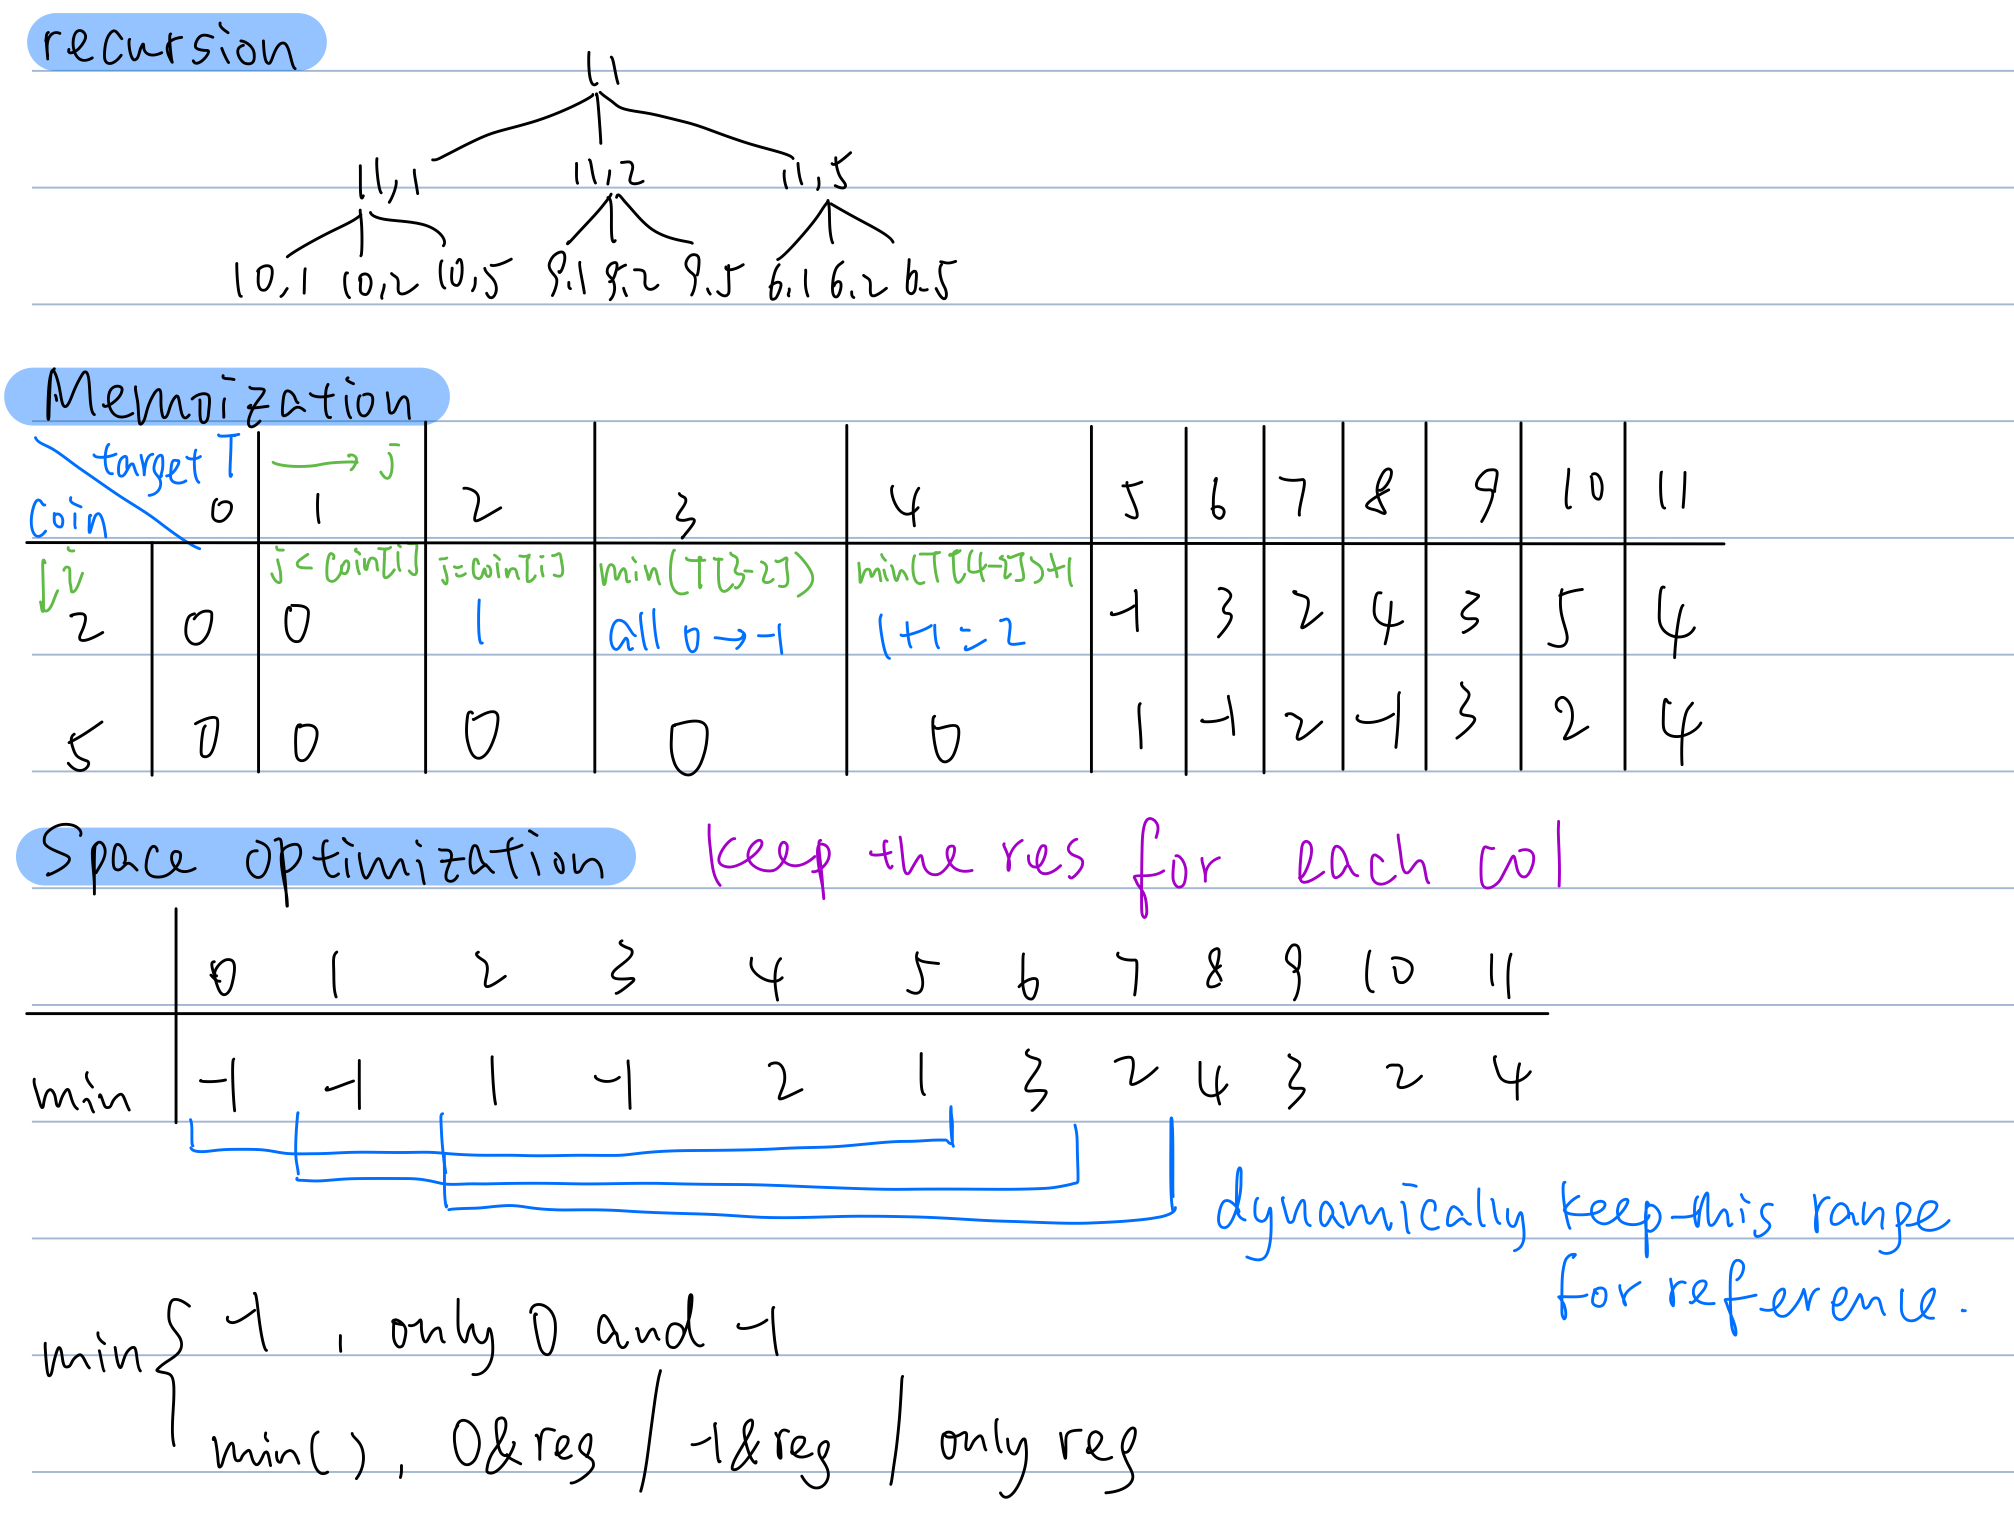 recursion
11
11,1 11,2 11,5
10,1 10,2 10,5 9,1 9,2 9,5 6,1 6,2 6,5
Memoization
target T → j
coin 0 1 2 3 4 5 6 7 8 9 10 11
↓i j < coin[i] j=coin[i] min(T[3-2]) min(T[4-2])+1
2 0 0 1 all 0 → -1 1+1=2 -1 3 2 4 3 5 4
5 0 0 0 0 0 1 -1 2 -1 3 2 4
Space optimization keep the res for each col
0 1 2 3 4 5 6 7 8 9 10 11
min -1 -1 1 -1 2 1 3 2 4 3 2 4
dynamically keep this range
for reference.
min { -1 , only 0 and -1
min(), 0&reg / -1&reg / only reg